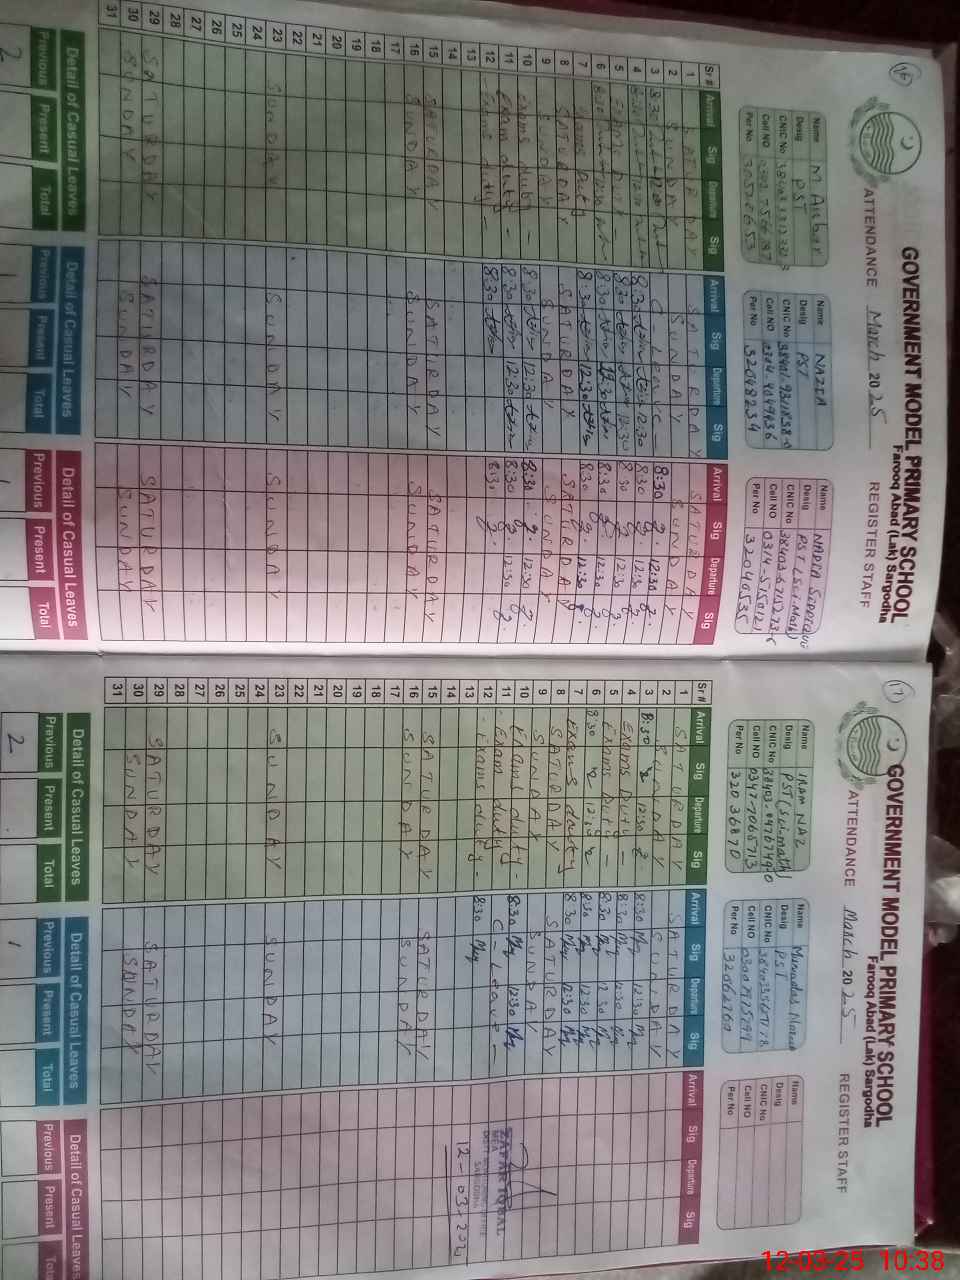 16
GOVERNMENT MODEL PRIMARY SCHOOL
Farooq Abad (Lak) Sargodha
ATTENDANCE March 2025 REGISTER STAFF
Name M Akbar
Desig PST
CNIC No
Cell NO
Per No 30520653
Name NAZIA
Desig PST
CNIC No
Cell NO 0304-4049436
Per No 32048234
Name NADIA Siddiqui
Desig PST (Sci.Math)
CNIC No
Cell NO 0314-5150121
Per No 32040535
Sr# Arrival Sig Departure Sig Arrival Sig Departure Sig Arrival Sig Departure Sig
1 SATURDAY SATURDAY SATURDAY
2 SUNDAY SUNDAY SUNDAY
3 8:30 12:30 C-Leave 8:30 12:30
4 8:30 12:30 8:30 12:30 8:30 12:30
5 Exams Duty 8:30 12:30 8:30 12:30
6 8:30 8:30 12:30 8:30 12:30
7 Exams Duty 8:30 12:30 8:30 12:30
8 SATURDAY SATURDAY SATURDAY
9 SUNDAY SUNDAY SUNDAY
10 Exams duty 8:30 12:30 8:30 12:30
11 Exam duty 8:30 12:30 8:30 12:30
12 Exams duty 8:30 8:30
13
14
15 SATURDAY SATURDAY SATURDAY
16 SUNDAY SUNDAY SUNDAY
17
18
19
20
21
22
23 SUNDAY SUNDAY SUNDAY
24
25
26
27
28
29 SATURDAY SATURDAY SATURDAY
30 SUNDAY SUNDAY SUNDAY
31
Detail of Casual Leaves Detail of Casual Leaves Detail of Casual Leaves
Previous Present Total Previous Present Total Previous Present Total
2 1 1
17
GOVERNMENT MODEL PRIMARY SCHOOL
Farooq Abad (Lak) Sargodha
ATTENDANCE March 2025 REGISTER STAFF
Name IRAM NAZ
Desig PST (Sci.math)
CNIC No 38403-0476749-0
Cell NO 0347-7065713
Per No 32036870
Name
Desig PST
CNIC No
Cell NO 03007925099
Per No 32062760
Name
Desig
CNIC No
Cell NO
Per No
Sr# Arrival Sig Departure Sig Arrival Sig Departure Sig Arrival Sig Departure Sig
1 SATURDAY SATURDAY
2 SUNDAY SUNDAY
3 8:30 12:30 8:30 12:30
4 Exams Duty 8:30 12:30
5 Exams Duty 8:30 12:30
6 8:30 12:30 8:30 12:30
7 Exams duty 8:30 12:30
8 SATURDAY SATURDAY
9 SUNDAY SUNDAY
10 Exams duty 8:30 12:30
11 Exam duty C-Leave
12 Exams duty 8:30
13
14
15 SATURDAY SATURDAY
16 SUNDAY SUNDAY
17
18
19
20
21
22
23 SUNDAY SUNDAY
24
25
26
27
28
29 SATURDAY SATURDAY
30 SUNDAY SUNDAY
31
ZAFAR IQBAL
MEA
SARGODHA
12-03-202
Detail of Casual Leaves Detail of Casual Leaves Detail of Casual Leaves
Previous Present Total Previous Present Total Previous Present Total
2 1
12-03-25 10:38